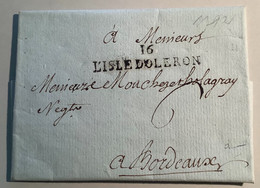 à Messieurs
16
L'ISLE DOLERON
Messieurs Mouchez et Lagray
Negts
a Bordeaux